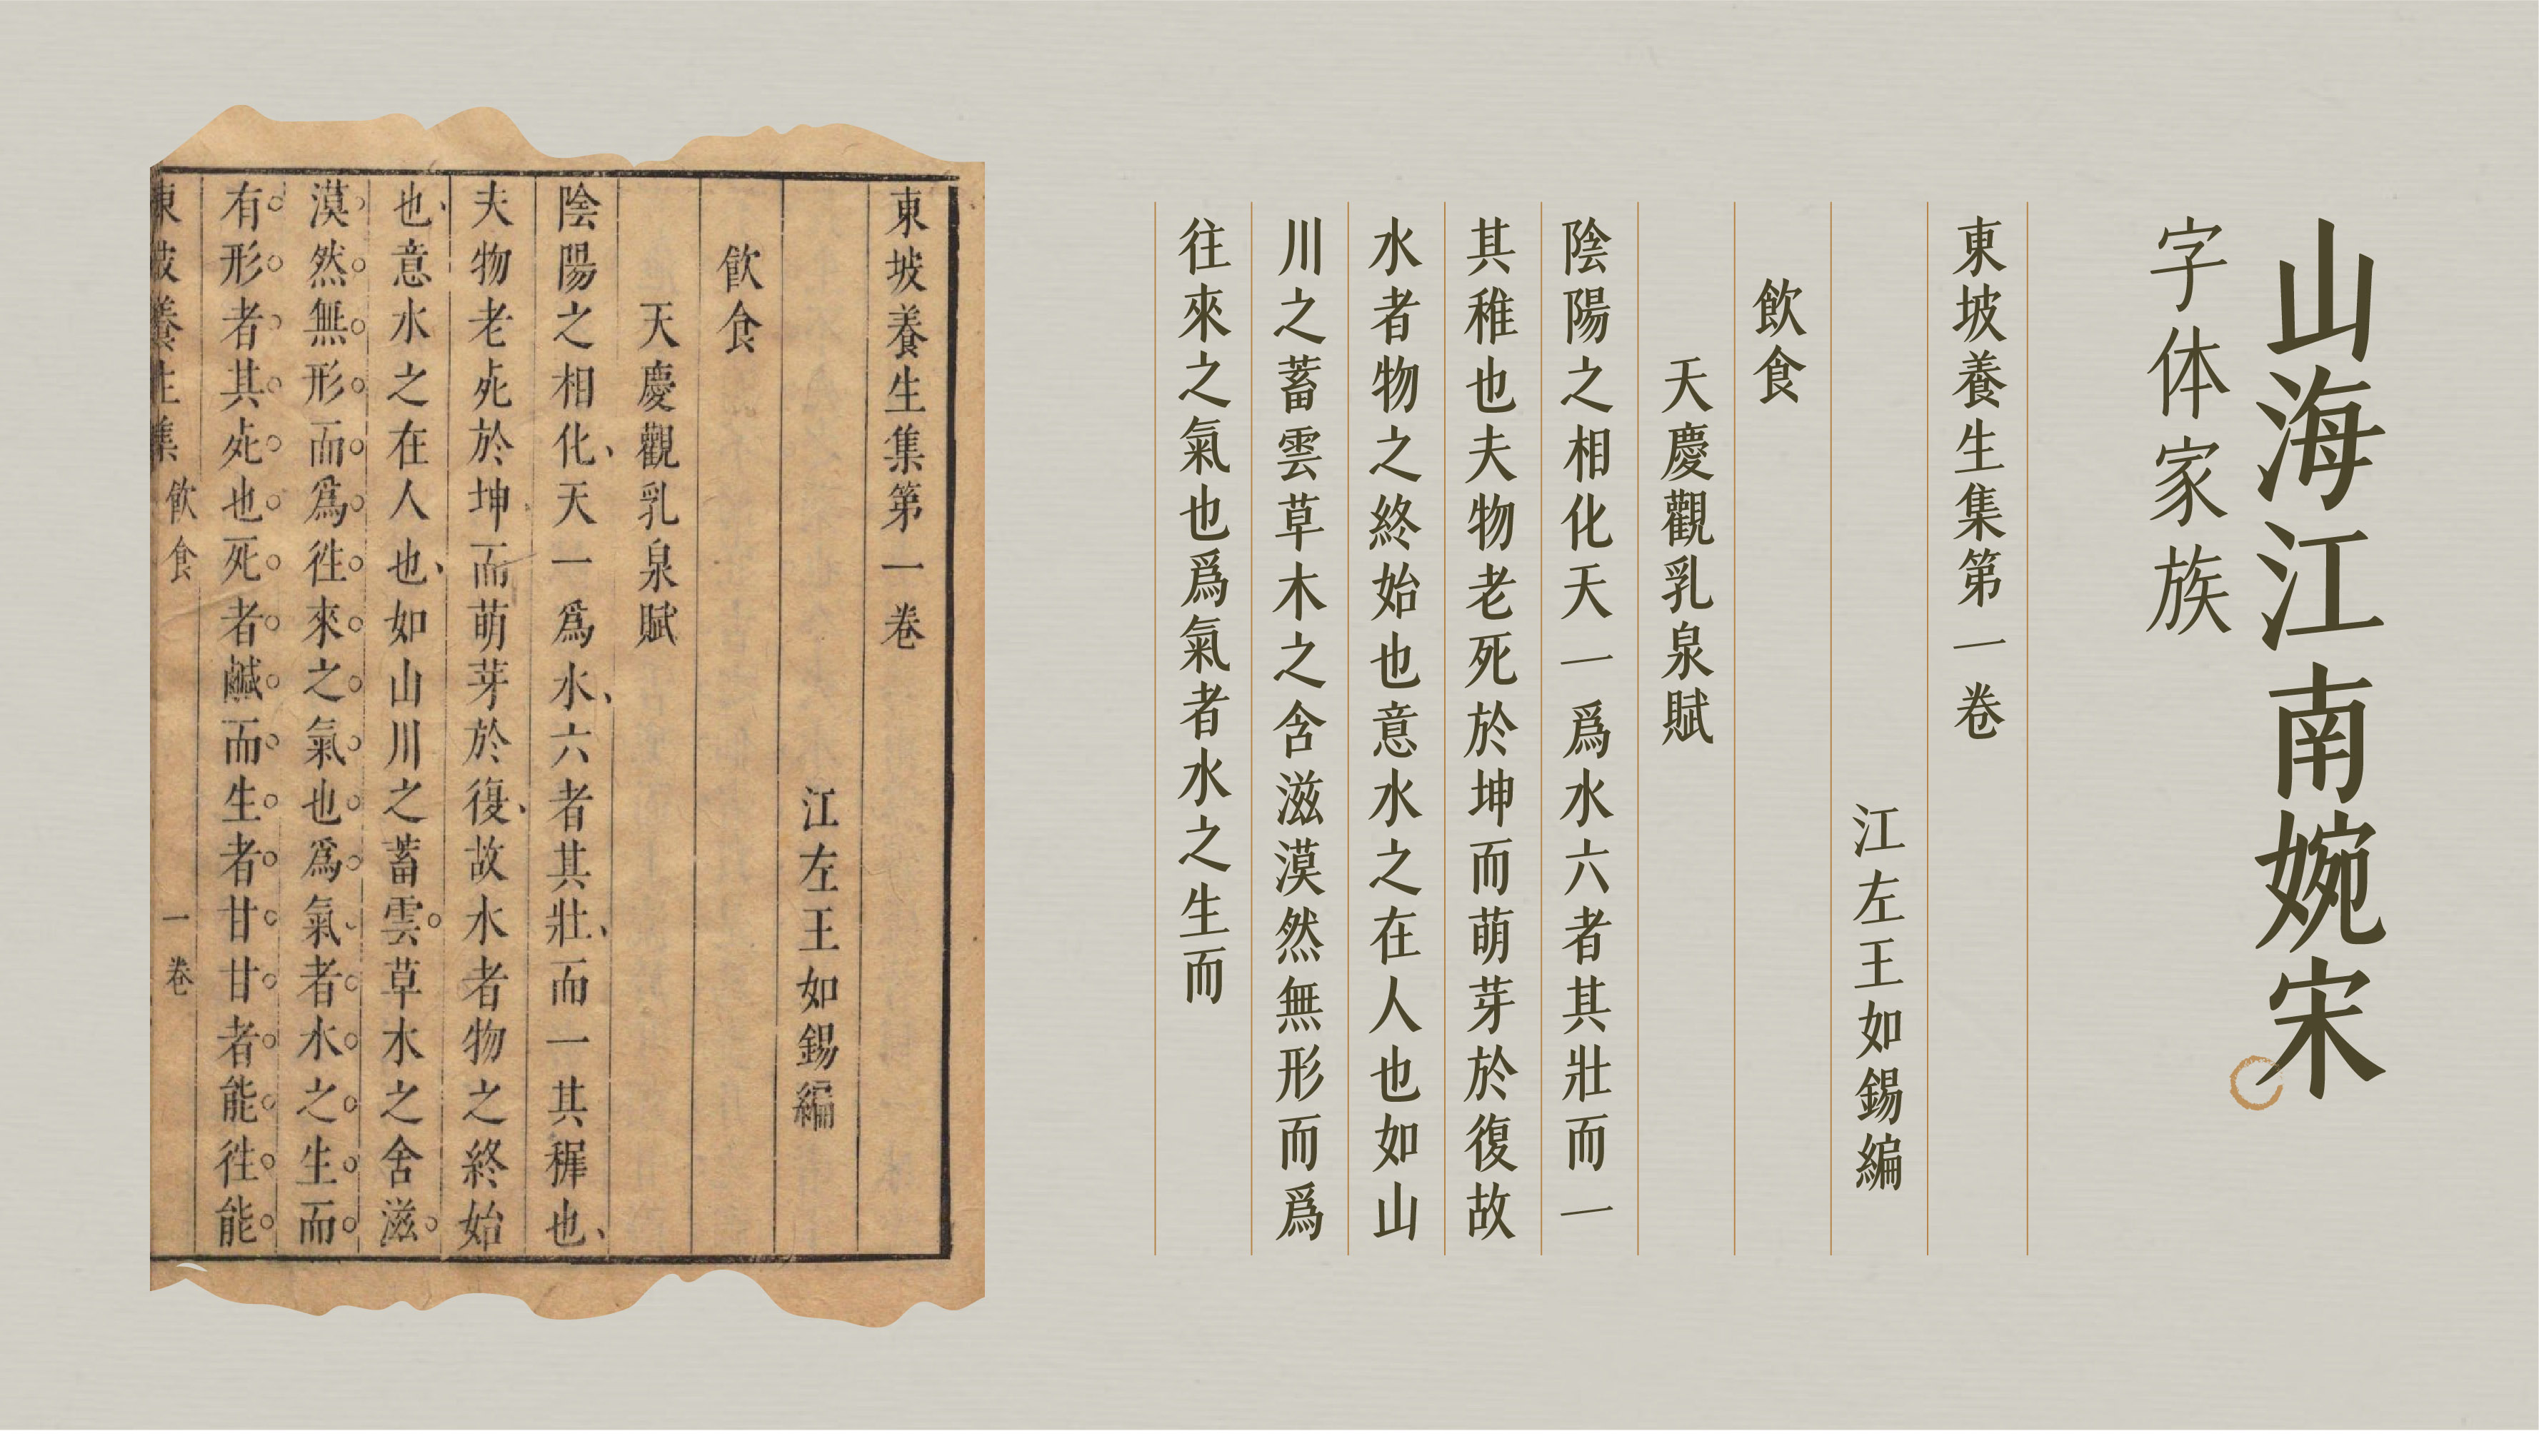 山海江南婉宋
字体家族
東坡養生集第一卷
江左王如錫編
飲食
天慶觀乳泉賦
陰陽之相化天一爲水六者其壯而一
其稚也夫物老死於坤而萌芽於復故
水者物之終始也意水之在人也如山
川之蓄雲草木之含滋漠然無形而爲
往來之氣也爲氣者水之生而
東坡養生集第一卷
江左王如錫編
飲食
天慶觀乳泉賦
陰陽之相化天一爲水六者其壯而一其稺也
夫物老死於坤而萌芽於復故水者物之終始
也意水之在人也如山川之蓄雲草木之含滋
漠然無形而爲往來之氣也爲氣者水之生而
有形者其死也死者鹹而生者甘甘者能往能
東坡養生集 飲食 一卷